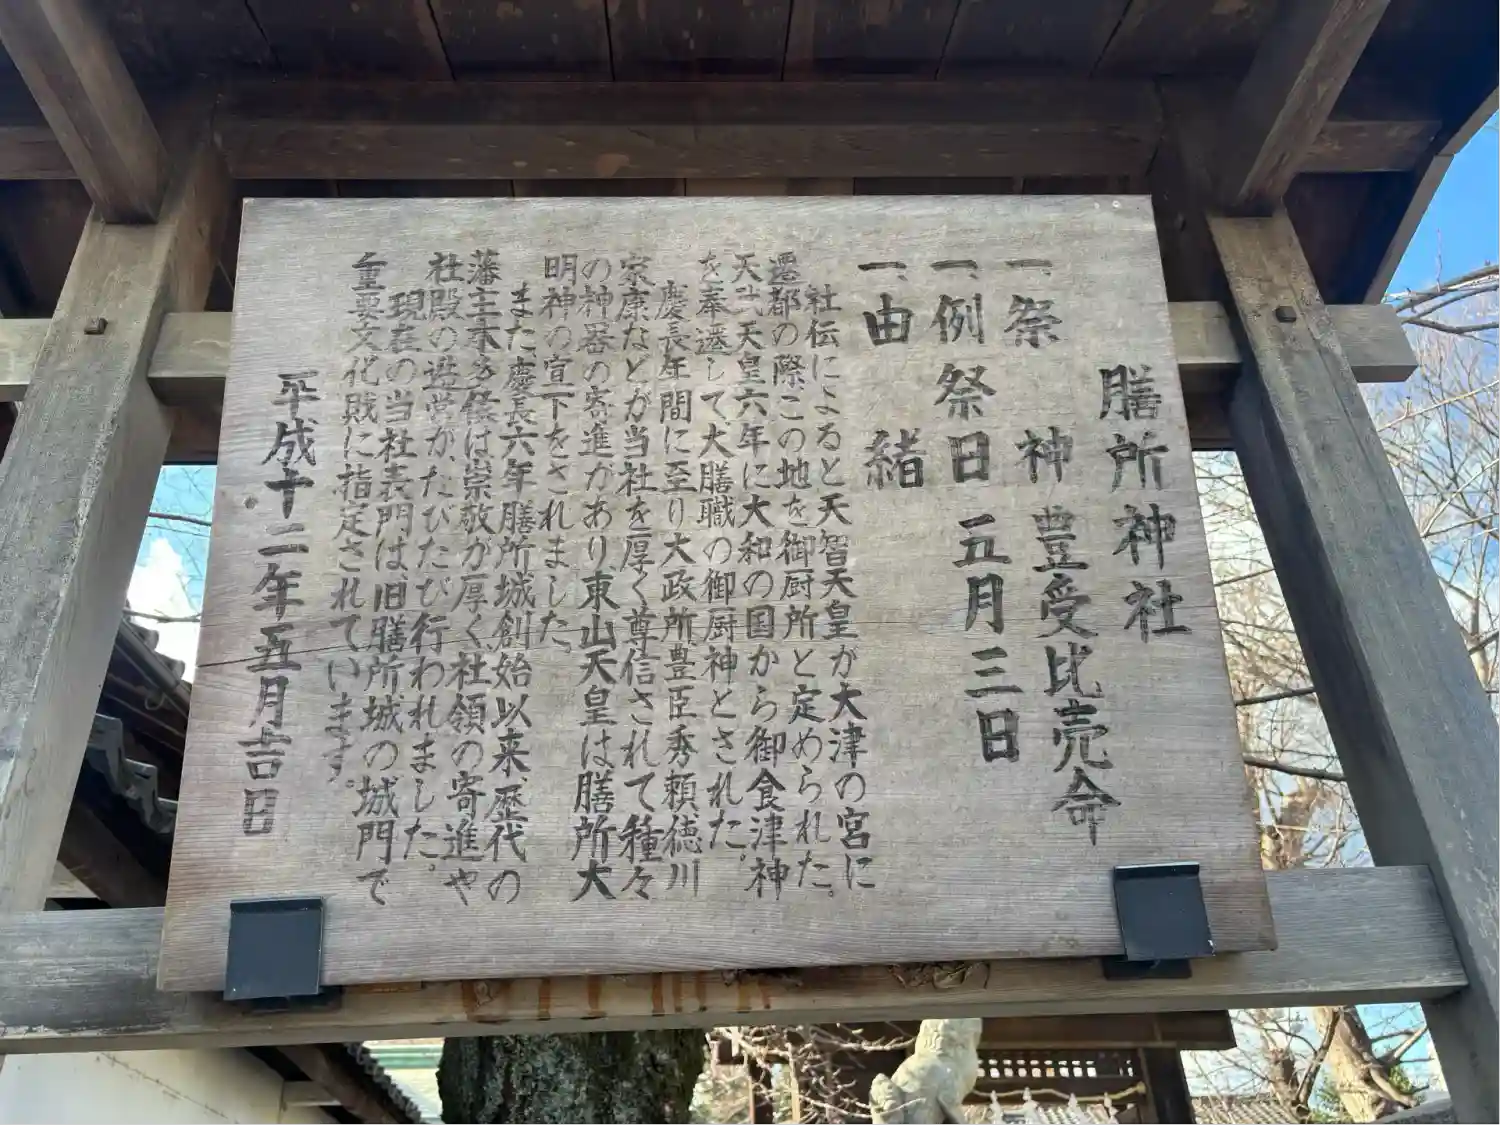 膳所神社
一、祭神 豊受比売命
一、例祭日 五月三日
一、由緒
社伝によると天智天皇が大津の宮に
遷都の際この地を御厨所と定められた。
天武天皇六年に大和の国から御食津神
を奉遷して大膳職の御厨神とされた。
慶長年間に至り大政所豊臣秀頼徳川
家康などが当社を厚く尊信されて種々
の神器の寄進があり東山天皇は膳所大
明神の宣下をされました。
また、慶長六年膳所城創始以来、歴代の
藩主本多侯は崇敬が厚く社領の寄進や
社殿の造営が、たびたび行われました。
現在の当社表門は、旧膳所城の城門で
重要文化財に指定されています。
平成十二年五月吉日